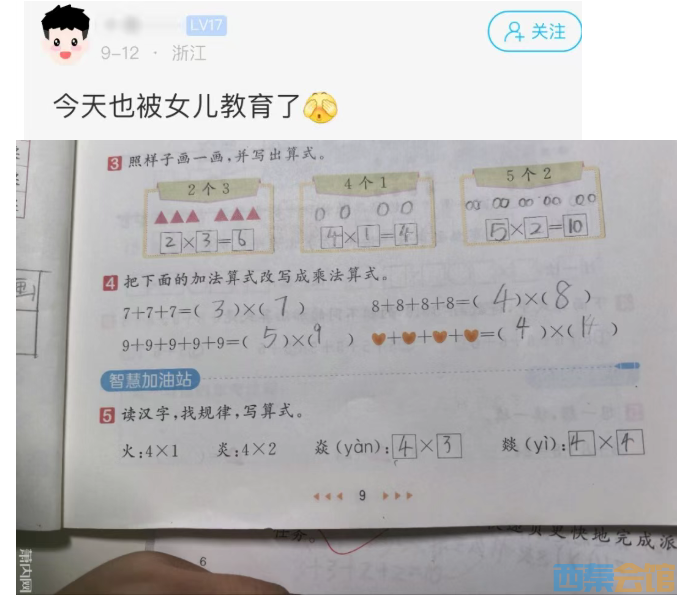 LV17
9-12 · 浙江
关注
今天也被女儿教育了
3 照样子画一画,并写出算式。
2个3 4个1 5个2
2×3=6 4×1=4 5×2=10
4 把下面的加法算式改写成乘法算式。
7+7+7=( 3 )×( 7 ) 8+8+8+8=( 4 )×( 8 )
9+9+9+9+9=( 5 )×( 9 ) ♥+♥+♥+♥=( 4 )×( )
智慧加油站
5 读汉字,找规律,写算式。
火:4×1 炎:4×2 焱(yàn):4×3 燚(yì):4×4
9
更快地完成派
6
萧内网